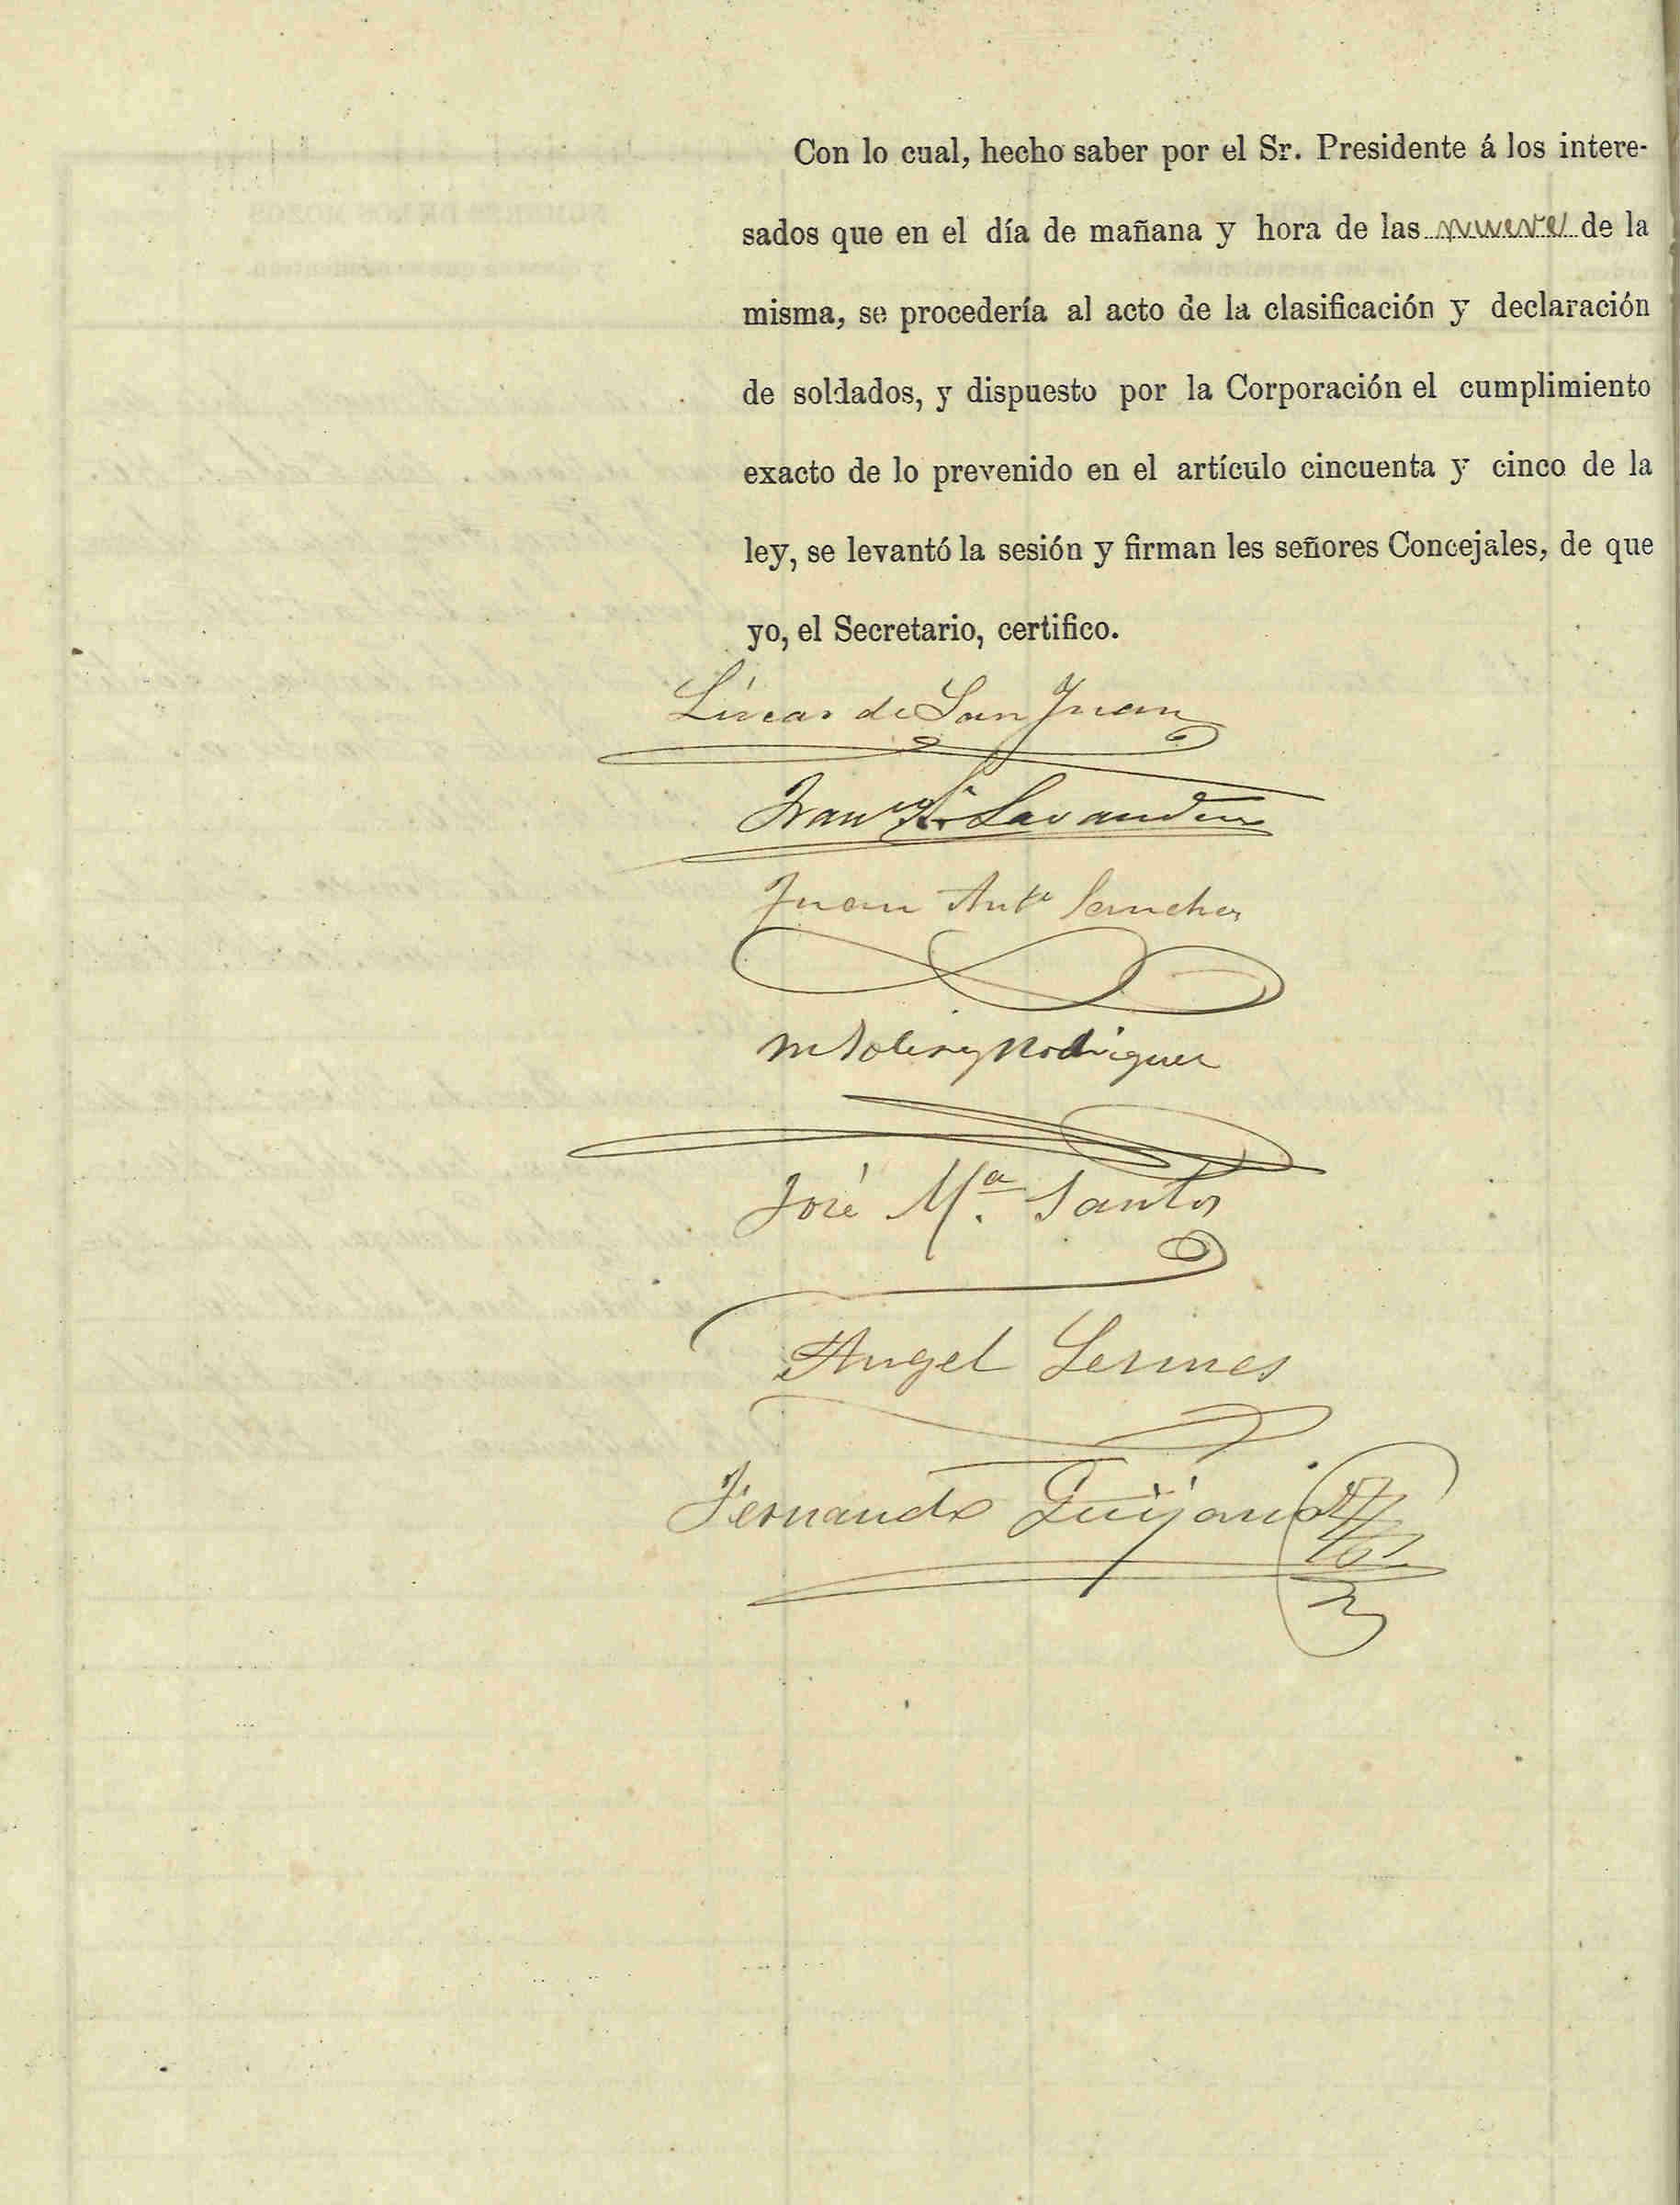 Con lo cual, hecho saber por el Sr. Presidente á los intere-
sados que en el día de mañana y hora de las nueve de la
misma, se procedería al acto de la clasificación y declaración
de soldados, y dispuesto por la Corporación el cumplimiento
exacto de lo prevenido en el artículo cincuenta y cinco de la
ley, se levantó la sesión y firman les señores Concejales, de que
yo, el Secretario, certifico.
de San Juan
Juan Antº Sanchez
Rodriguez
José Mª. Santos
Angel Lesmes
Fernando Guijarro